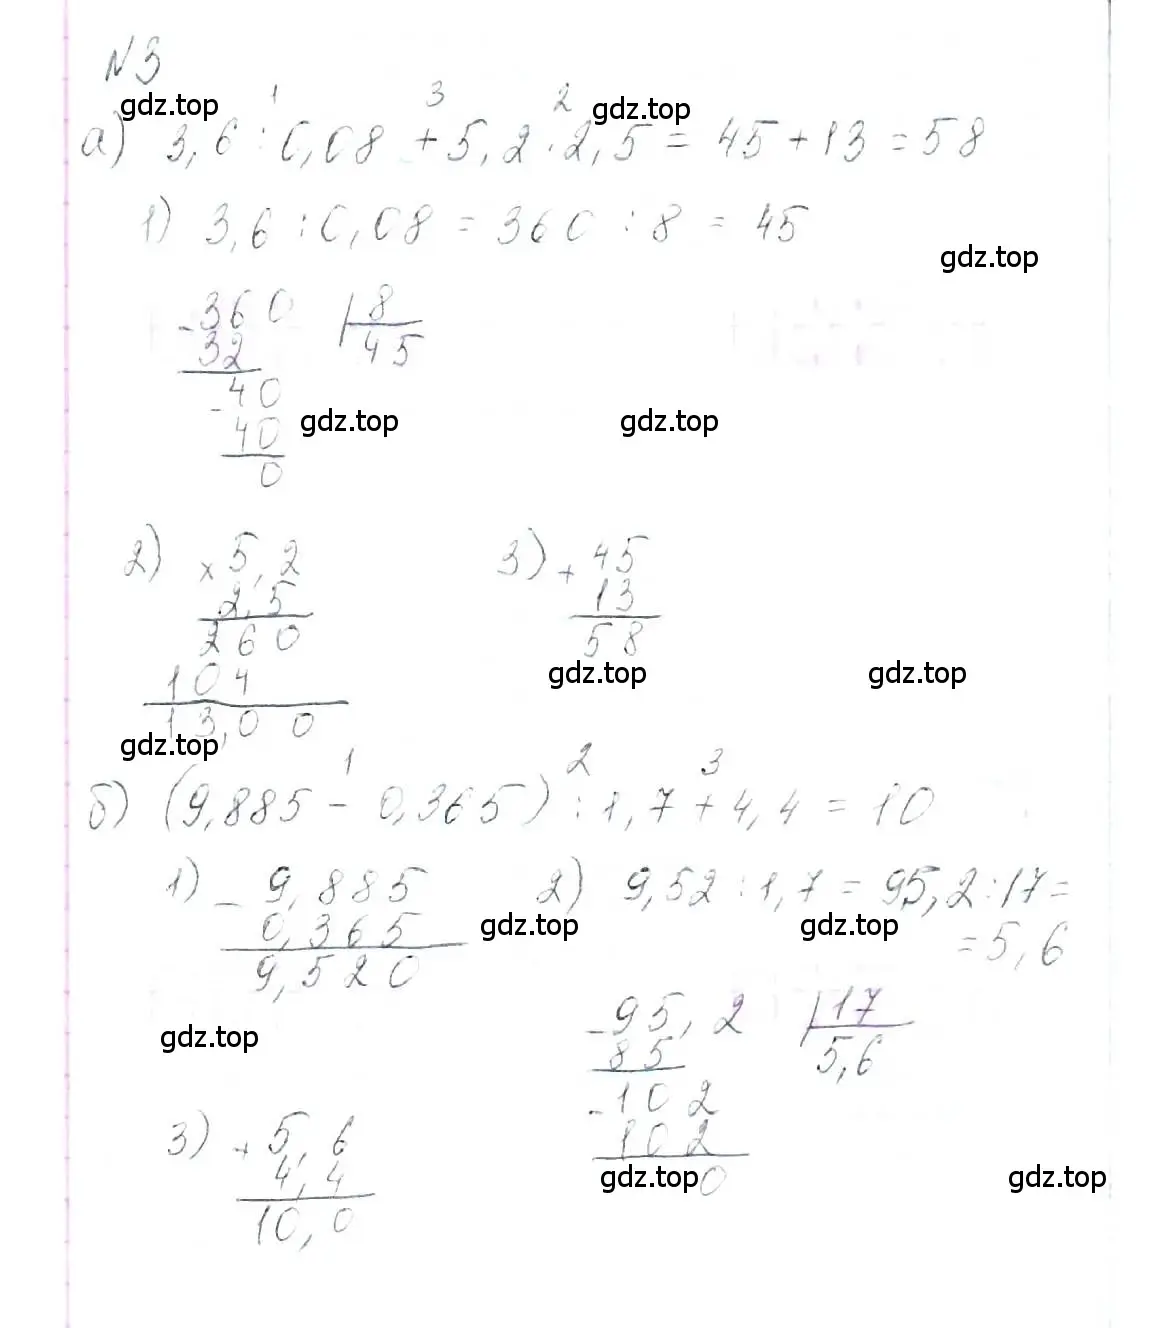 N3
gdz.top
1 3 2 gdz.top
а) 3,6 : 0,08 + 5,2 · 2,5 = 45 + 13 = 58
1) 3,6 : 0,08 = 360 : 8 = 45
gdz.top
- 360 | 8
32 45
- 40
40 gdz.top gdz.top
0
2) × 5,2 3) + 45
2,5 13
260 58
104 gdz.top gdz.top
13,00
gdz.top
1 2 3
б) (9,885 - 0,365) : 1,7 + 4,4 = 10
1) - 9,885 2) 9,52 : 1,7 = 95,2 : 17 =
0,365 gdz.top gdz.top = 5,6
9,520
gdz.top - 95,2 | 17
85 5,6
- 102
3) + 5,6 102
4,4 gdz.top 0 gdz.top
10,0